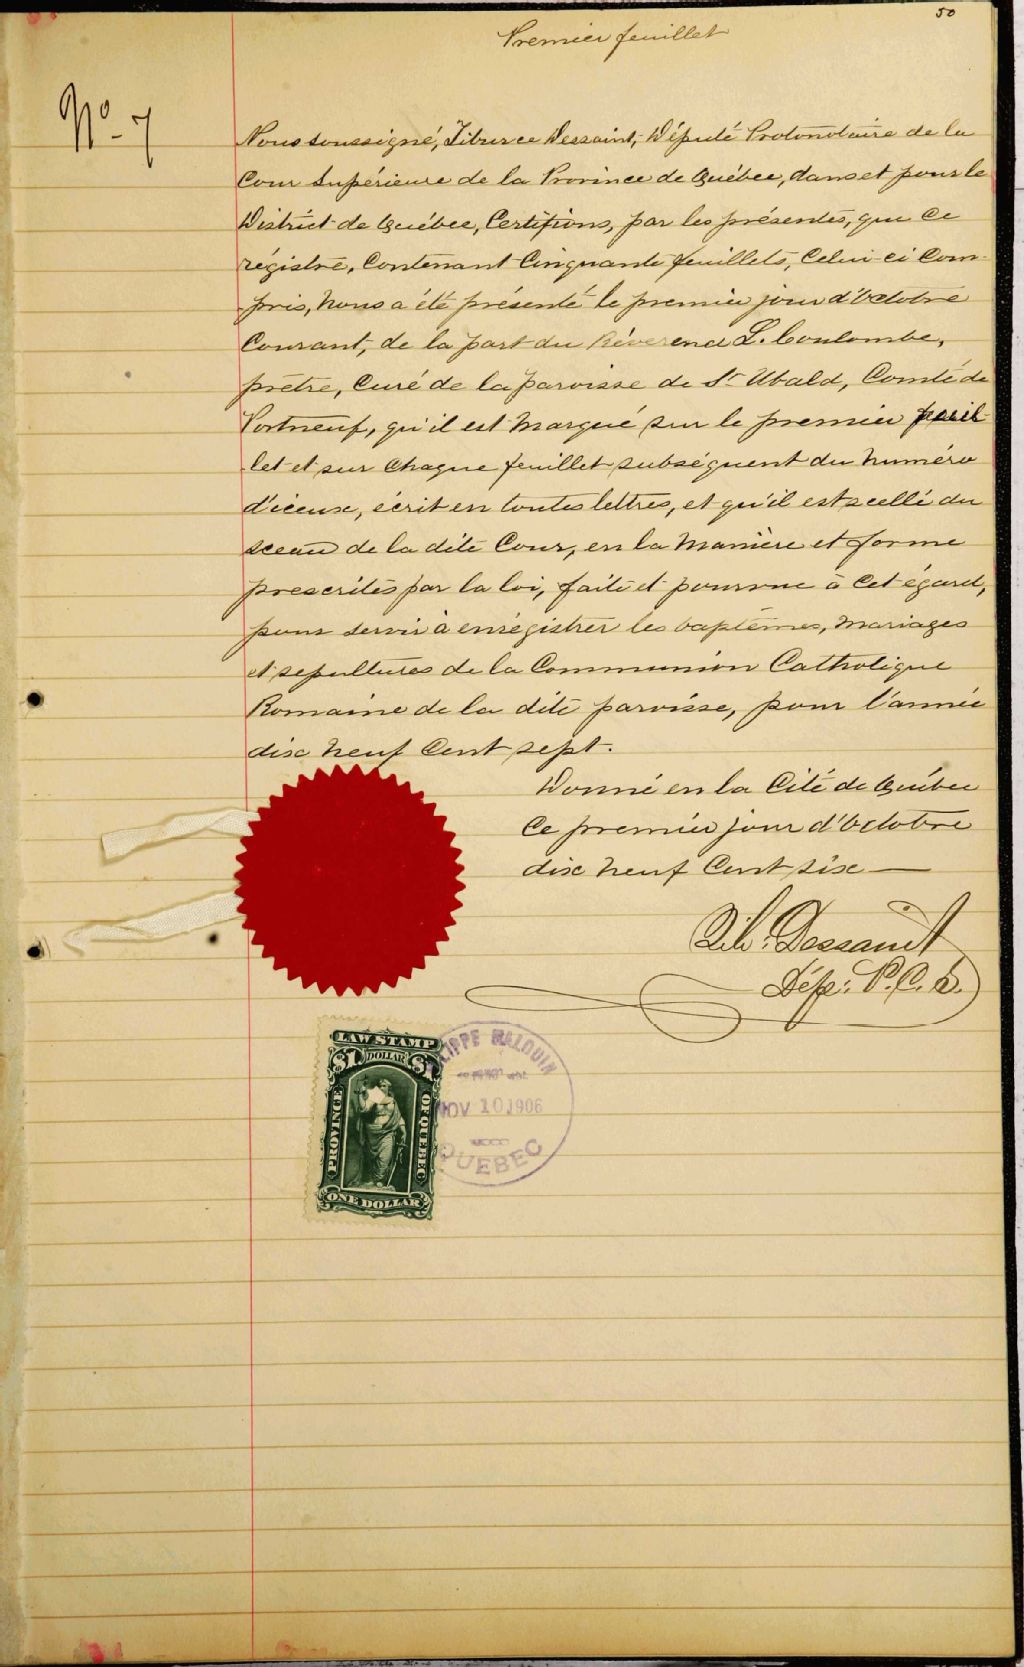 50
Premier feuillet
No- 7
Nous soussigné, Tiburce Dessaint, Député Protonotaire de la
Cour Supérieure de la Province de Québec, dans et pour le
District de Québec, Certifions, par les présentes, que ce
régistre, Contenant Cinquante feuillets, Celui-ci Com-
pris, nous a été présenté le premier jour d'Octobre
Courant, de la part du Révérend L. Coulombe,
prêtre, Curé de la paroisse de St Ubald, Comté de
Portneuf, qu'il est marqué sur le premier feuil-
let et sur chaque feuillet subséquent du numéro
d'iceux, écrit en toutes lettres, et qu'il est scellé du
sceau de la dite Cour, en la manière et forme
prescrites par la loi, faite et pourvue à cet égard,
pour servir à enrégistrer les baptêmes, mariages
et sepultures de la Communion Catholique
Romaine de la dite paroisse, pour l'année
dix neuf Cent sept.
Donné en la Cité de Québec
Ce premier jour d'Octobre
dix neuf Cent six —
Tib. Dessaint
Dép: P.C.S.
LAW STAMP
$1 DOLLAR $1
PROVINCE OF QUEBEC
ONE DOLLAR
NOV 10 1906
QUEBEC